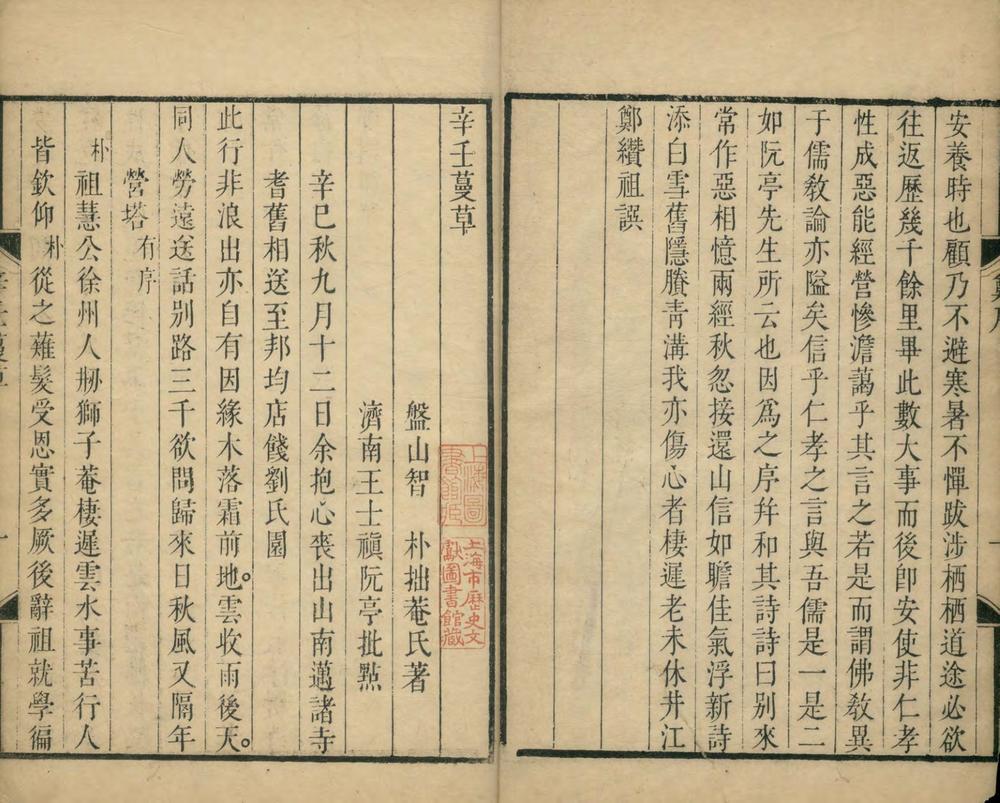 安養時也顧乃不避寒暑不憚跋涉栖栖道途必欲
往返歷幾千餘里畢此數大事而後卽安使非仁孝
性成惡能經營慘澹藹乎其言之若是而謂佛敎異
于儒敎論亦隘矣信乎仁孝之言與吾儒是一是二
如阮亭先生所云也因爲之序幷和其詩詩曰別來
常作惡相憶兩經秋忽接還山信如瞻佳氣浮新詩
添白雪舊隱賸靑溝我亦傷心者棲遲老未休井江
鄭纘祖譔
辛壬蔓草
盤山智 朴拙菴氏著
濟南王士禛阮亭批點
辛巳秋九月十二日余抱心喪出山南邁諸寺
耆舊相送至邦均店餞劉氏園
此行非浪出亦自有因緣木落霜前地。雲收雨後天。
同人勞遠送話別路三千欲問歸來日秋風又隔年
營塔有序
朴祖慧公徐州人刱獅子菴棲遲雲水事苦行人
皆欽仰朴從之薙髮受恩實多厥後辭祖就學徧
上海圖書館藏
上海市歷史文獻圖書館藏